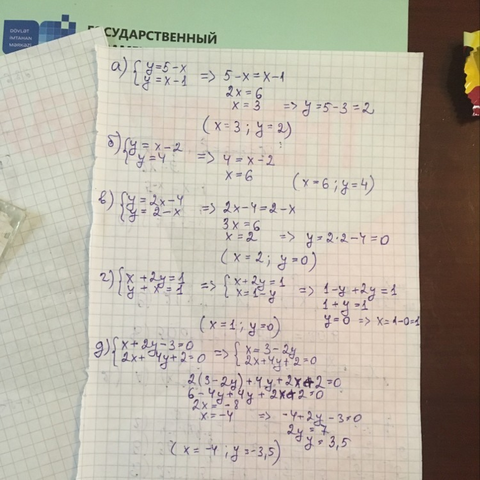 DÖVLƏT
İMTAHAN
MƏRKƏZİ
ГОСУДАРСТВЕННЫЙ
а) { y=5-x => 5-x=x-1
y=x-1
2x=6
x=3 => y=5-3=2
(x=3; y=2)
б) { y=x-2 => 4=x-2
y=4
x=6
(x=6; y=4)
в) { y=2x-4 => 2x-4=2-x
y=2-x
3x=6
x=2 => y=2·2-4=0
(x=2; y=0)
г) { x+2y=1 => { x+2y=1 => 1-y+2y=1
y+x=1 x=1-y
1+y=1
y=0 => x=1-0=1
(x=1; y=0)
д) { x+2y-3=0 => { x=3-2y
2x+4y+2=0 2x+4y+2=0
2(3-2y)+4y+2x+2=0
6-4y+4y+2x+2=0
2x=-8
x=-4 => -4+2y-3=0
2y=7
y=3,5
(x=-4; y=-3,5)